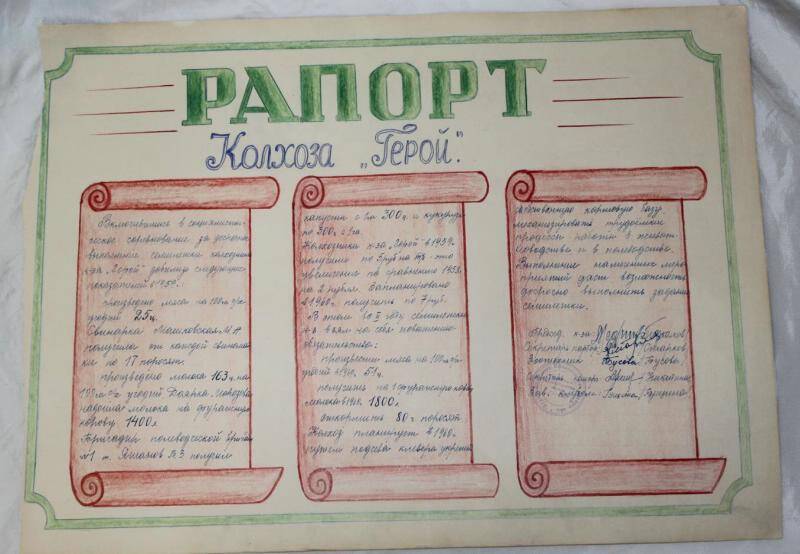 РАПОРТ
Колхоза „Герой".
Включившись в социалисти-
ческое соревнование за досрочное
выполнение семилетки колхозники
к-за „Герой" добились следующих
показателей в 1959г.:
произведено мяса на 100 га с/х
угодий 25ц.
Свинарка
получила от каждой свиномат-
ки по 17 поросят.
произведено молока 163 ц. на
100 га с/х угодий Доярка
надоила молока на фуражную
корову 1400л
Бригадир полеводческой бригады
№1 т. получил
капусты с 1га 300ц. и кукурузы
по 300ц. с 1га.
Колхозники к-за „Герой" в 1959г.
получили по 5 руб на это
увеличение по сравнению 1958г.
на 2 рубля. Запланировано
в 1960г. получить по 7 руб.
В этом году семилетки
к-з взял на себя повышенные
обязательства:
произвести мяса на 100 га с/х
угодий в 1960г. 51ц.
получить на 1 фуражную корову
молока в 1960г. 1800л
откормить 80 поросят
Колхоз планирует в 1960г.
путем подсева клевера укрепить
собственную кормовую базу
механизировать трудоемкие
процессы работы в живот-
новодстве и в полеводстве.
Выполнение намеченных меро-
приятий даст возможность
досрочно выполнить задания
семилетки.
Председ. к-за
Секретарь
Зоотехник Гусева /Гусева/